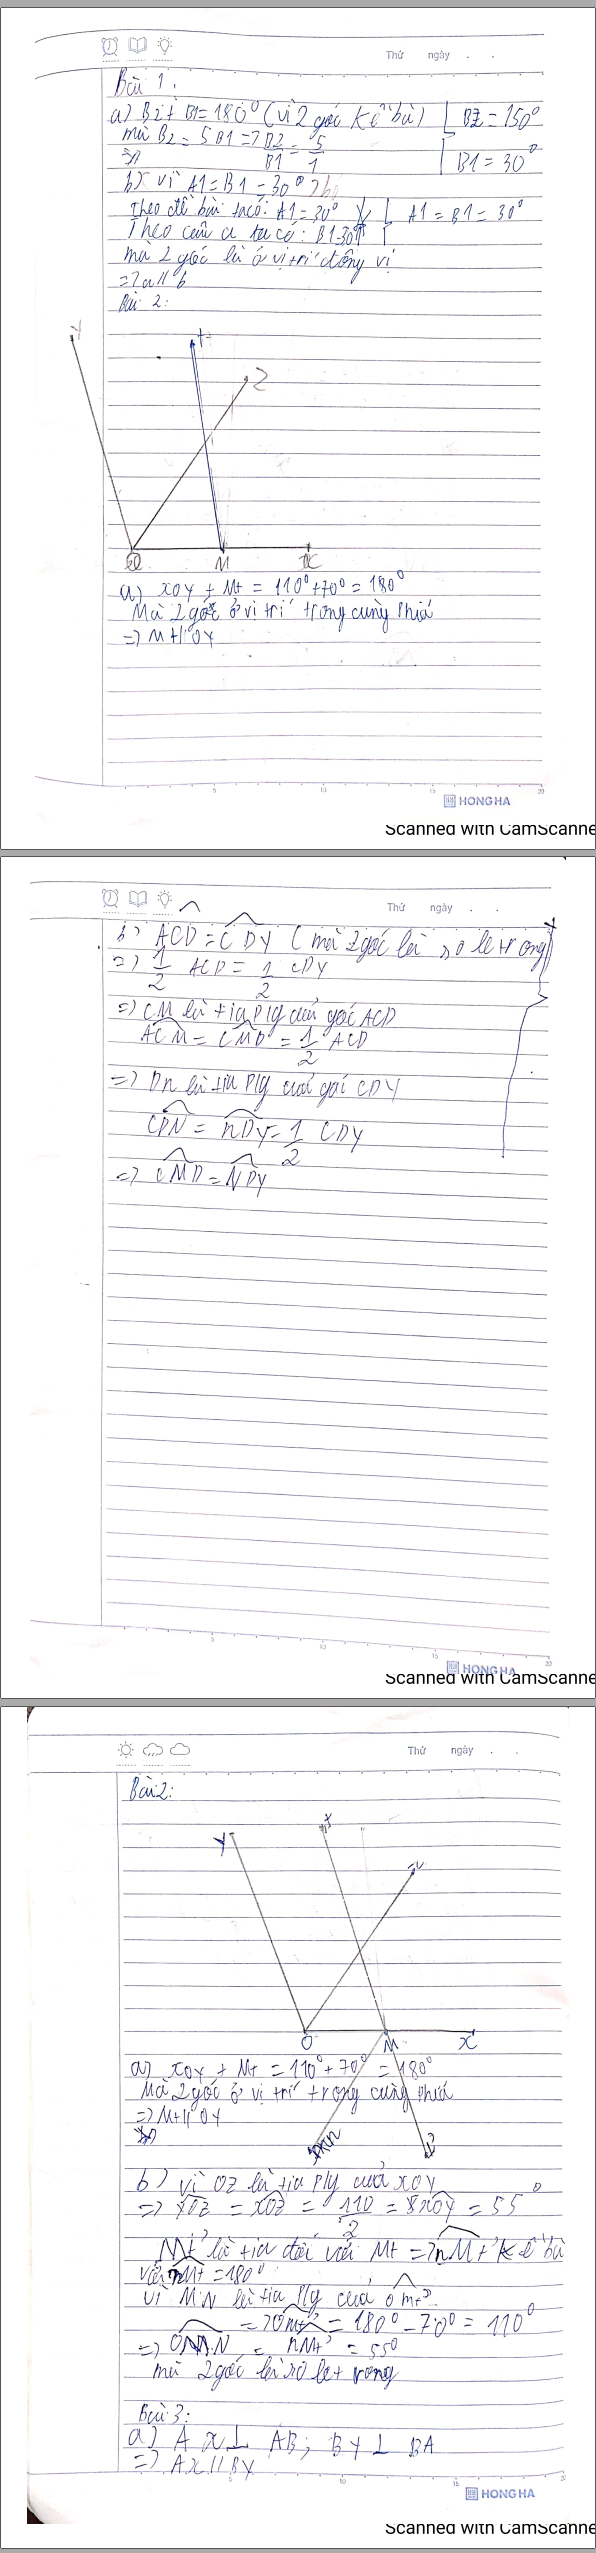 Thứ ngày . .
Bài 1:
a) B2 + B1 = 180° (vì 2 góc kề bù)
B2 = 150°
mà B2 = 5 B1 => B2/B1 = 5/1
B1 = 30°
b) vì A1 = B1 = 30°
Theo đề bài ta có: A1 = 30°
A1 = B1 = 30°
Theo câu a ta có: B1 = 30°
mà 2 góc là ở vị trí đồng vị
=> a // b
Bài 2:
y
t
z
O M x
a) xOy + Mt = 110° + 70° = 180°
Mà 2 góc ở vị trí trong cùng phía
=> Mt // Oy
5 10 15 20
HONG HA
Scanned with CamScanne
Thứ ngày . .
b) ACD = CDy (mà 2 góc là so le trong)
=> 1/2 ACD = 1/2 CDy
=> CM là tia p/g của góc ACD
ACM = CMD = 1/2 ACD
=> Dn là tia p/g của góc CDY
CDN = nDy = 1/2 CDY
=> CMD = NDy
5 10 15 20
HONG HA
Scanned with CamScanne
Thứ ngày . .
Bài 2:
y
z
O M x
a) xOy + Mt = 110° + 70° = 180°
Mà 2 góc ở vị trí trong cùng phía
=> Mt // Oy
b) vì Oz là tia p/g của xOy
=> yOz = xOz = 110/2 = xOy = 55°
Mt' là tia đối với Mt => nMt' kề bù
với nMt = 180°
vì MN là tia p/g của Omt'
=> Omt' = 180° - 70° = 110°
=> OMN = nMt' = 55°
mà 2 góc là so le trong
Bài 3:
a) Ax ⊥ AB; By ⊥ BA
=> Ax // By
5 10 15
HONG HA
Scanned with CamScanne